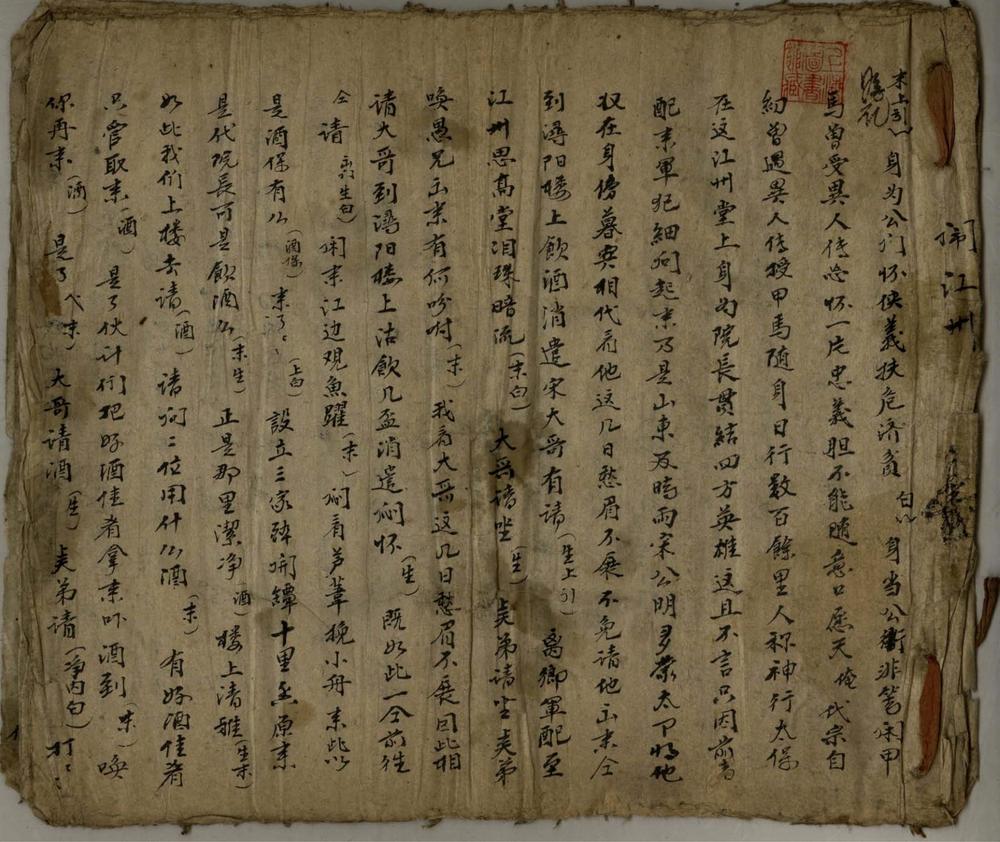 闹江州
末上引 身为公门怀侠義扶危济貧 白 身当公衛非等闲甲
馬曾受異人传忠怀一片忠義胆不能随意口應天俺 代宗自
幼曾遇異人传授甲馬随身日行数百餘里人称神行太保
在这江州堂上身为院長贯結四方英雄这且不言只因前者
配来軍犯細问起来乃是山東及時雨宋公明多蒙太爷将他
収在身傍相代看他这几日愁眉不展不免请他出来仝
到潯阳楼上飲酒消遣宋大哥有请（生上引） 离鄉軍配至
江州思高堂泪珠暗流（末白）大哥请坐（生）贤弟请坐贤弟
唤愚兄出来有何吩咐（末）我看大哥这几日愁眉不展因此相
请大哥到潯阳楼上沽飲几盃消遣闷怀（生）既如此一仝前往
仝请 （生白） 闲来江边观魚躍（末）闷看芦葦挽小舟来此以
是酒保有么（酒保）来了（上白）設立三家醉開罈十里香原来
是代院長可是飲酒么（末生）正是那里潔净 酒 楼上清雅（生末）
如此我们上楼去请（酒）请问二位用什么酒（末）有好酒佳肴
只管取来（酒）是了伙计们把好酒佳肴拿来吓酒到（末）唤
你再来（酒）是了 下（末）大哥请酒（生）贤弟请（净内白）打